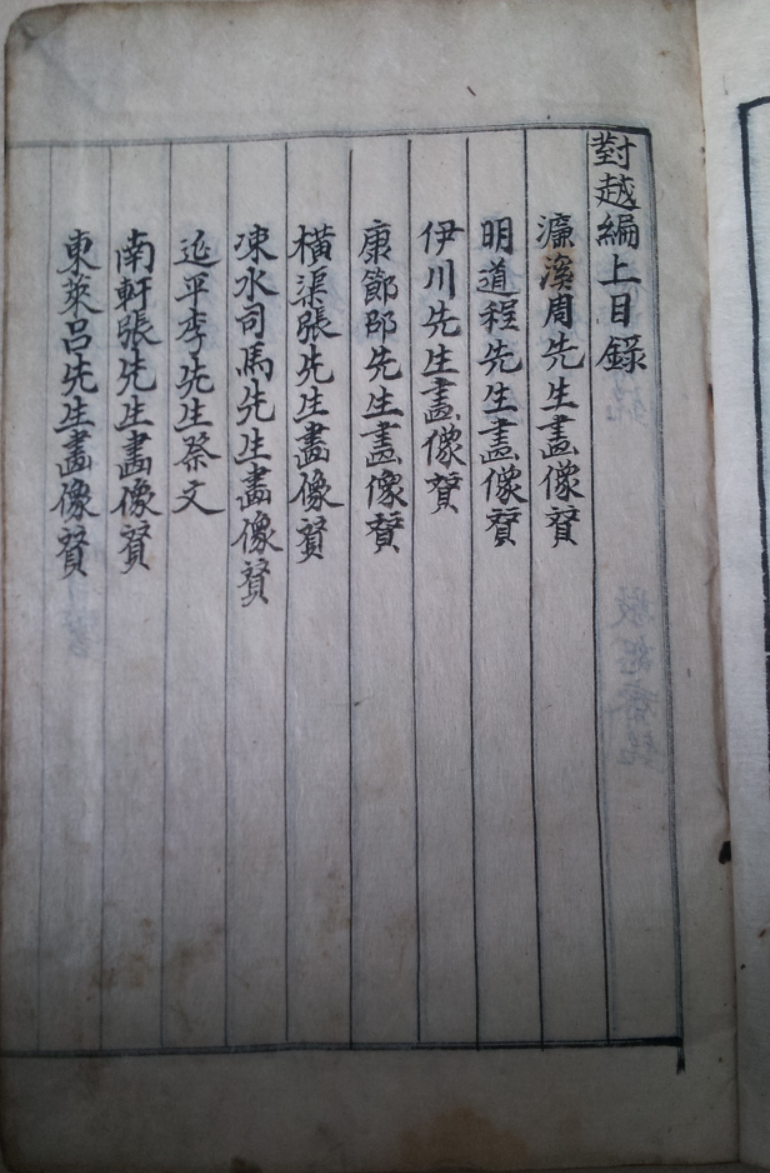 對越編上目錄
濂溪周先生畫像贊
明道程先生畫像贊
伊川先生畫像贊
康節邵先生畫像贊
橫渠張先生畫像贊
涑水司馬先生畫像贊
延平李先生祭文
南軒張先生畫像贊
東萊呂先生畫像贊